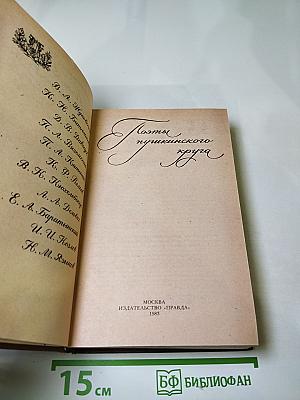 В. А. Жуков
К. Н.
Д. В. Давыд
П. А. Вяземс
П. А. Кате
К. Ф. Рыле
В. К. Кюхельбе
А. А. Дельв
Е. А. Баратынский
И. И. Козлов
Н. М. Языков
Поэты
пушкинского
круга
МОСКВА
ИЗДАТЕЛЬСТВО «ПРАВДА»
1983
15 см
БФ БИБЛИОФАН